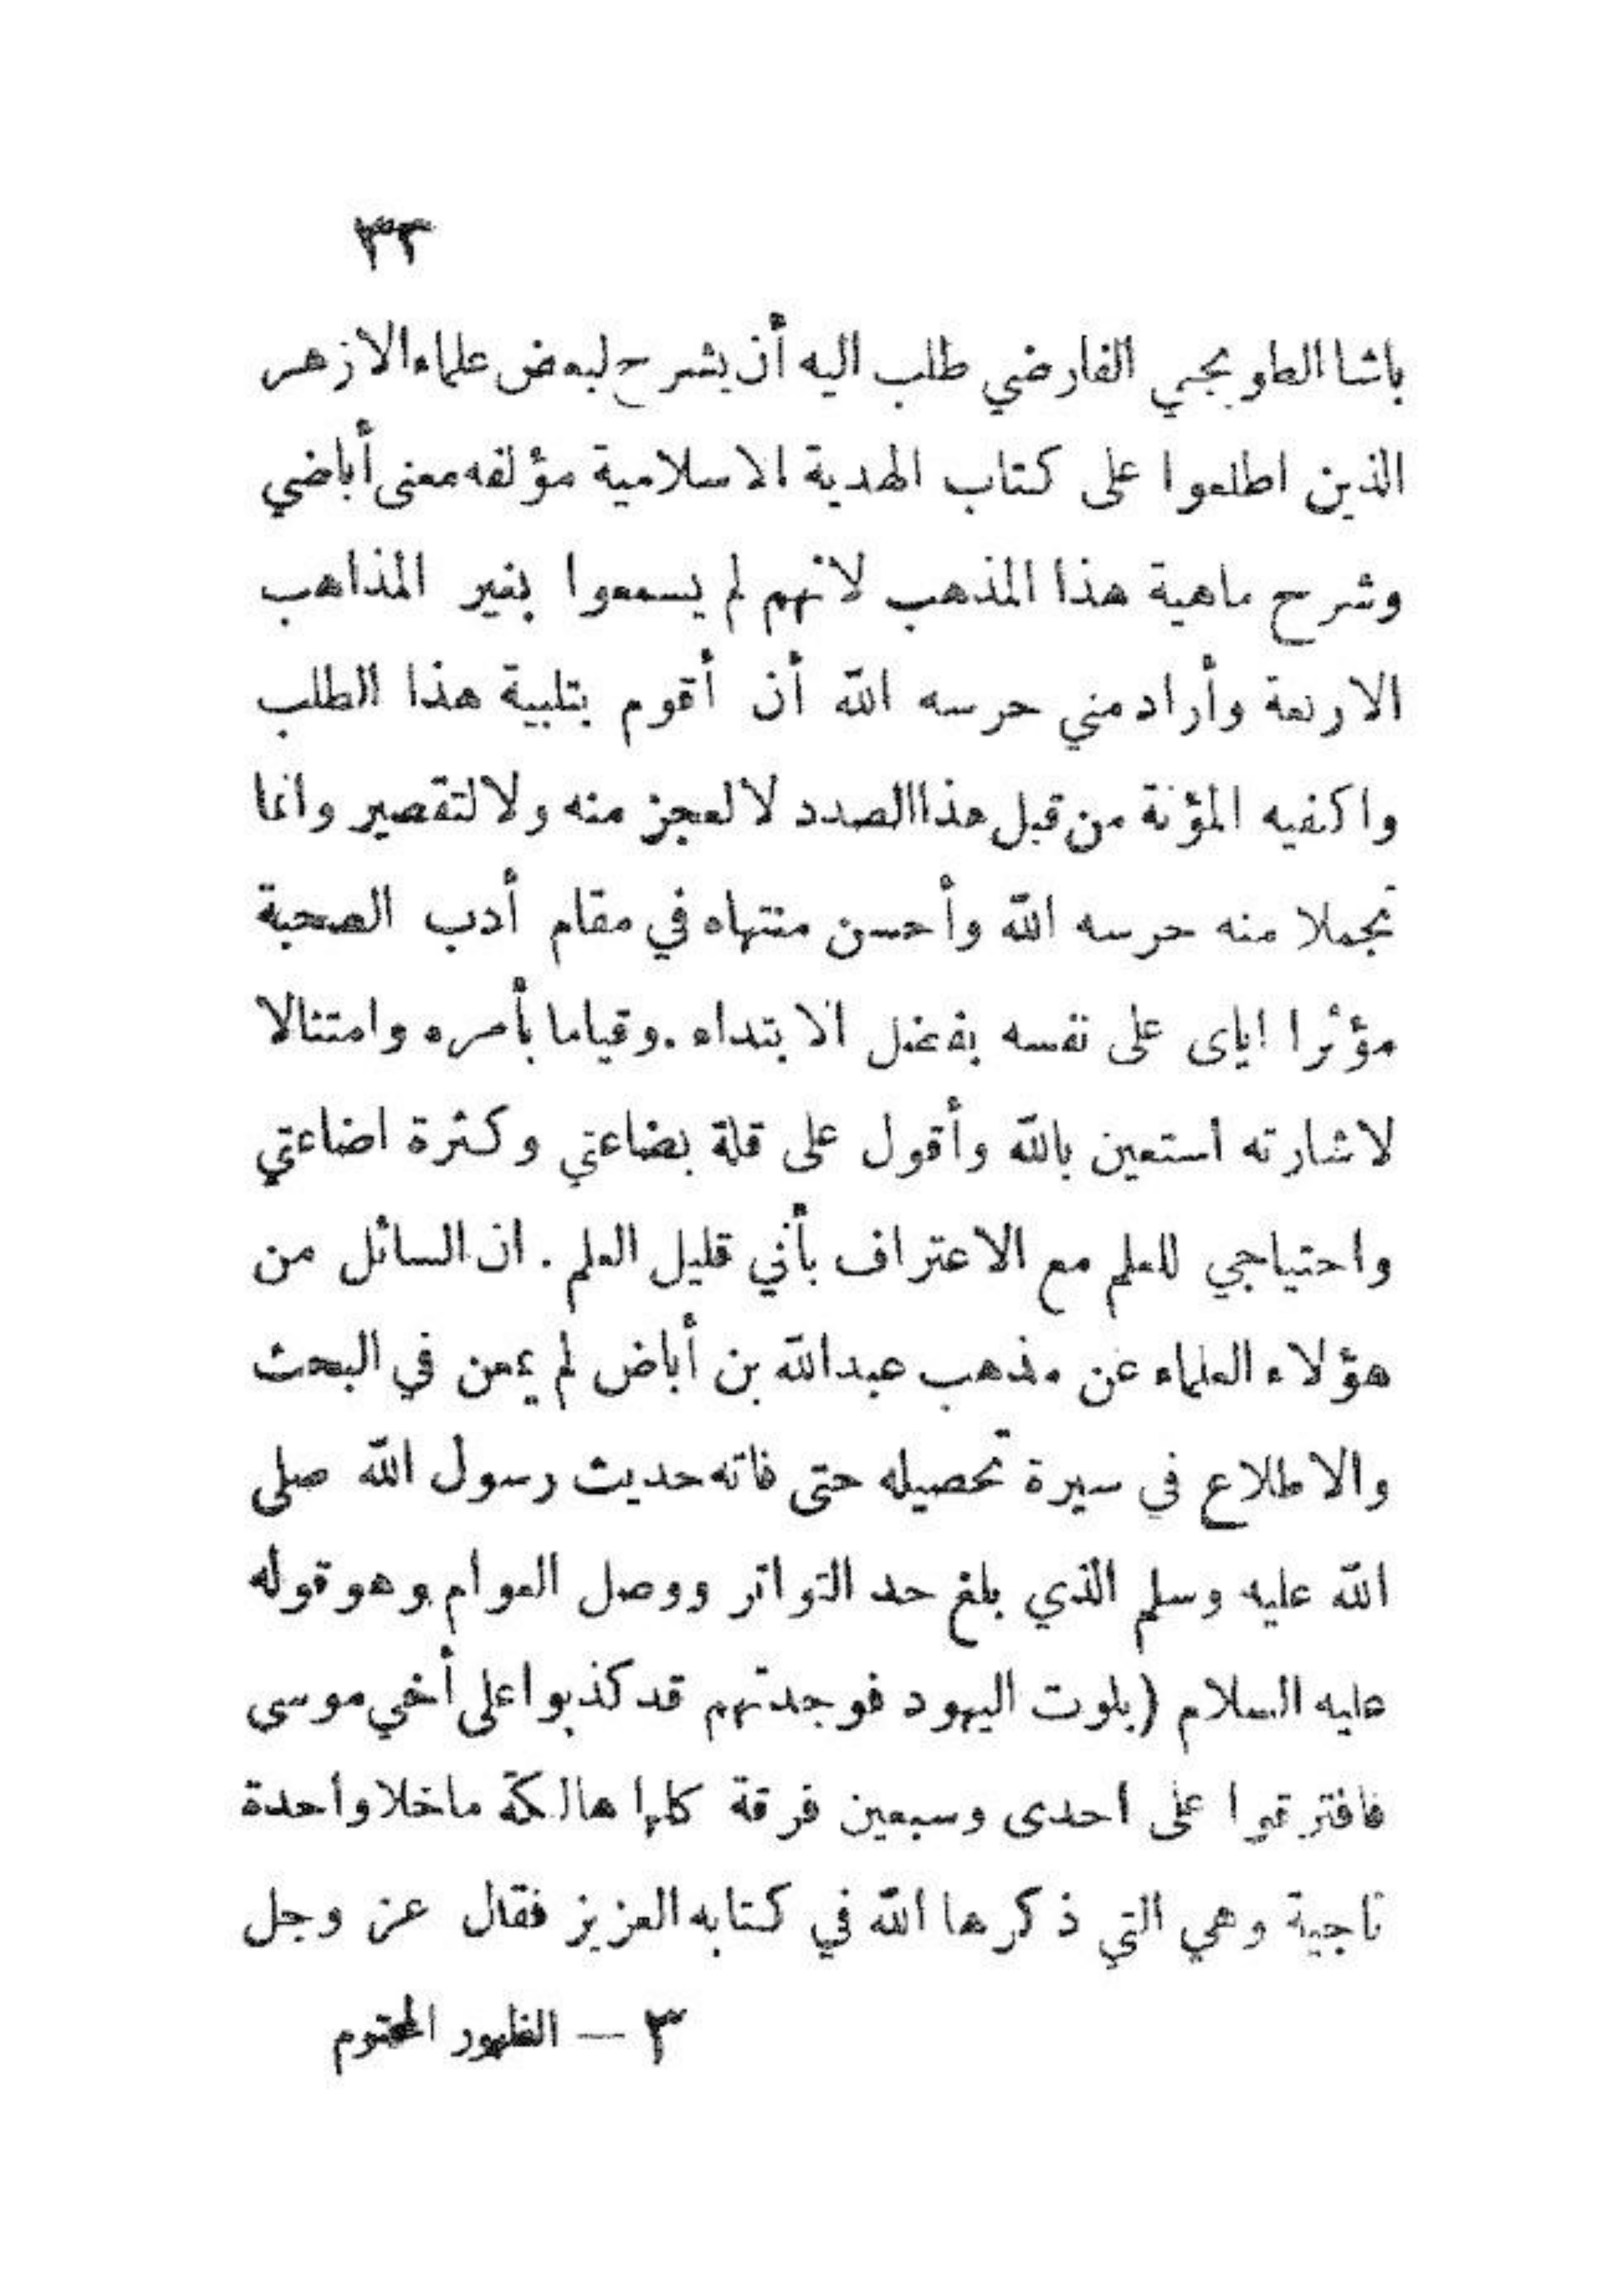 ٣٣
باشا الطوبجي الفارضي طلب اليه أن يشرح لبعض علماء الازهر
الذين اطلعوا على كتاب الهدية الاسلامية مؤلفه معنى أباضي
وشرح ماهية هذا المذهب لانهم لم يسمعوا بغير المذاهب
الاربعة وأراد مني حرسه الله أن أقوم بتلبية هذا الطلب
واكفيه المؤنة من قبل هذا الصدد لا لعجز منه ولا لتقصير وانما
تجملا منه حرسه الله وأحسن منتهاه في مقام أدب الصحبة
مؤثرا اياى على نفسه بفضل الابتداء . وقياما بأمره وامتثالا
لاشارته استعين بالله وأقول على قلة بضاعتي وكثرة اضاعتي
واحتياجي للعلم مع الاعتراف بأني قليل العلم . ان السائل من
هؤلاء العلماء عن مذهب عبدالله بن أباض لم يمعن في البحث
والاطلاع في سيرة تحصيله حتى فاته حديث رسول الله صلى
الله عليه وسلم الذي بلغ حد التواتر ووصل العوام وهو قوله
عليه السلام (بلوت اليهود فوجدتهم قد كذبوا على أخي موسى
فافترقوا على احدى وسبعين فرقة كلها هالكة ماخلا واحدة
ناجية وهي التي ذكرها الله في كتابه العزيز فقال عز وجل
٣ — الظهور المحتوم